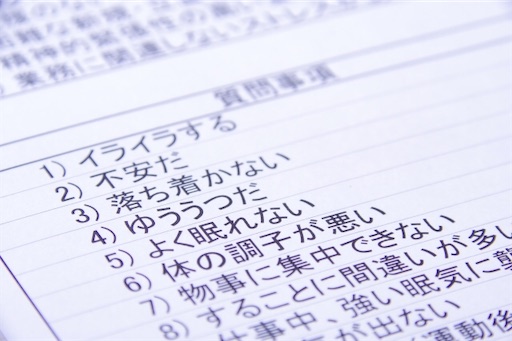 業務に関連しないストレス
質問事項
1) イライラする
2) 不安だ
3) 落ち着かない
4) ゆううつだ
5) よく眠れない
6) 体の調子が悪い
7) 物事に集中できない
8) することに間違いが多い
仕事中、強い眠気に襲
が出ない
運動後